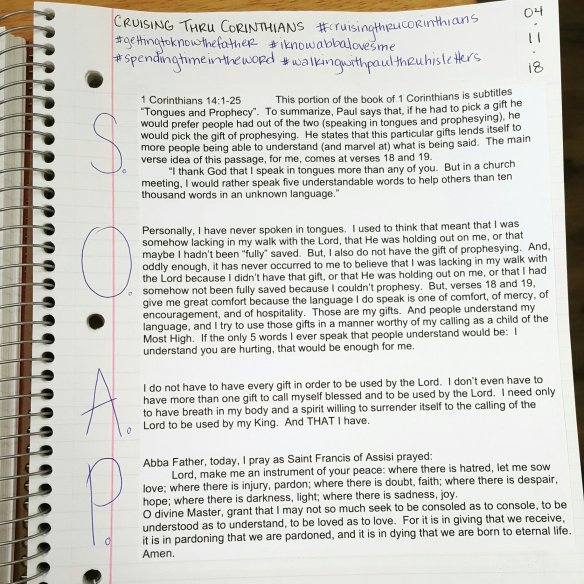 CRUISING THRU CORINTHIANS #cruisingthrucorinthians
#gettingtoknowthefather #iknowabbalovesme
#spendingtimeintheword #walkingwithpaulthruhisletters
04
.
11
.
18
S.
1 Corinthians 14:1-25 This portion of the book of 1 Corinthians is subtitles
"Tongues and Prophecy". To summarize, Paul says that, if he had to pick a gift he
would prefer people had out of the two (speaking in tongues and prophesying), he
would pick the gift of prophesying. He states that this particular gifts lends itself to
more people being able to understand (and marvel at) what is being said. The main
verse idea of this passage, for me, comes at verses 18 and 19.
"I thank God that I speak in tongues more than any of you. But in a church
meeting, I would rather speak five understandable words to help others than ten
thousand words in an unknown language."
O.
Personally, I have never spoken in tongues. I used to think that meant that I was
somehow lacking in my walk with the Lord, that He was holding out on me, or that
maybe I hadn't been "fully" saved. But, I also do not have the gift of prophesying. And,
oddly enough, it has never occurred to me to believe that I was lacking in my walk with
the Lord because I didn't have that gift, or that He was holding out on me, or that I had
somehow not been fully saved because I couldn't prophesy. But, verses 18 and 19,
give me great comfort because the language I do speak is one of comfort, of mercy, of
encouragement, and of hospitality. Those are my gifts. And people understand my
language, and I try to use those gifts in a manner worthy of my calling as a child of the
Most High. If the only 5 words I ever speak that people understand would be: I
understand you are hurting, that would be enough for me.
A.
I do not have to have every gift in order to be used by the Lord. I don't even have to
have more than one gift to call myself blessed and to be used by the Lord. I need only
to have breath in my body and a spirit willing to surrender itself to the calling of the
Lord to be used by my King. And THAT I have.
P.
Abba Father, today, I pray as Saint Francis of Assisi prayed:
Lord, make me an instrument of your peace: where there is hatred, let me sow
love; where there is injury, pardon; where there is doubt, faith; where there is despair,
hope; where there is darkness, light; where there is sadness, joy.
O divine Master, grant that I may not so much seek to be consoled as to console, to be
understood as to understand, to be loved as to love. For it is in giving that we receive,
it is in pardoning that we are pardoned, and it is in dying that we are born to eternal life.
Amen.